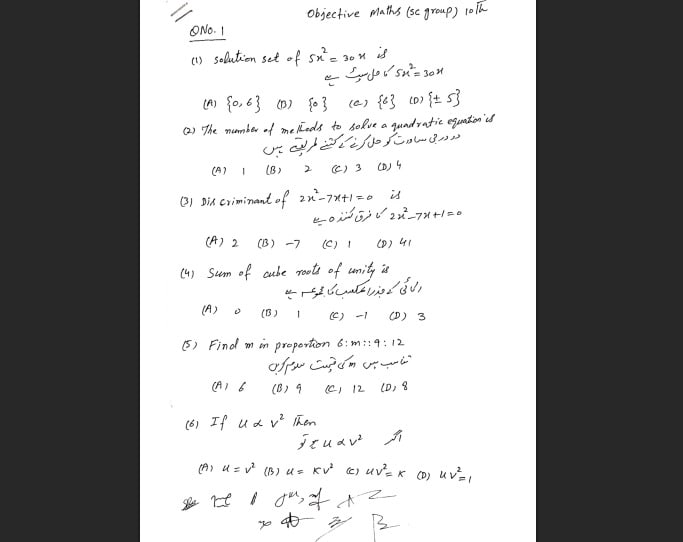 Objective Maths (SC group) 10th
QNo. 1
(1) Solution set of 5x² = 30x is
5x² = 30x کا حل سیٹ ہے
(A) {0, 6} (B) {0} (C) {6} (D) {± 5}
(2) The number of methods to solve a quadratic equation is
دو درجی مساوات کو حل کرنے کے کتنے طریقے ہیں
(A) 1 (B) 2 (C) 3 (D) 4
(3) Discriminant of 2x²-7x+1=0 is
2x²-7x+1=0 کا فرق کنندہ ہے
(A) 2 (B) -7 (C) 1 (D) 41
(4) Sum of cube roots of unity is
اکائی کے جذر المکعب کا مجموعہ ہے
(A) 0 (B) 1 (C) -1 (D) 3
(5) Find m in proportion 6:m::9:12
تناسب میں m کی قیمت معلوم کریں
(A) 6 (B) 9 (C) 12 (D) 8
(6) If u ∝ v² Then
اگر u ∝ v² تو
(A) u = v² (B) u = Kv² (C) uv² = K (D) uv² = 1